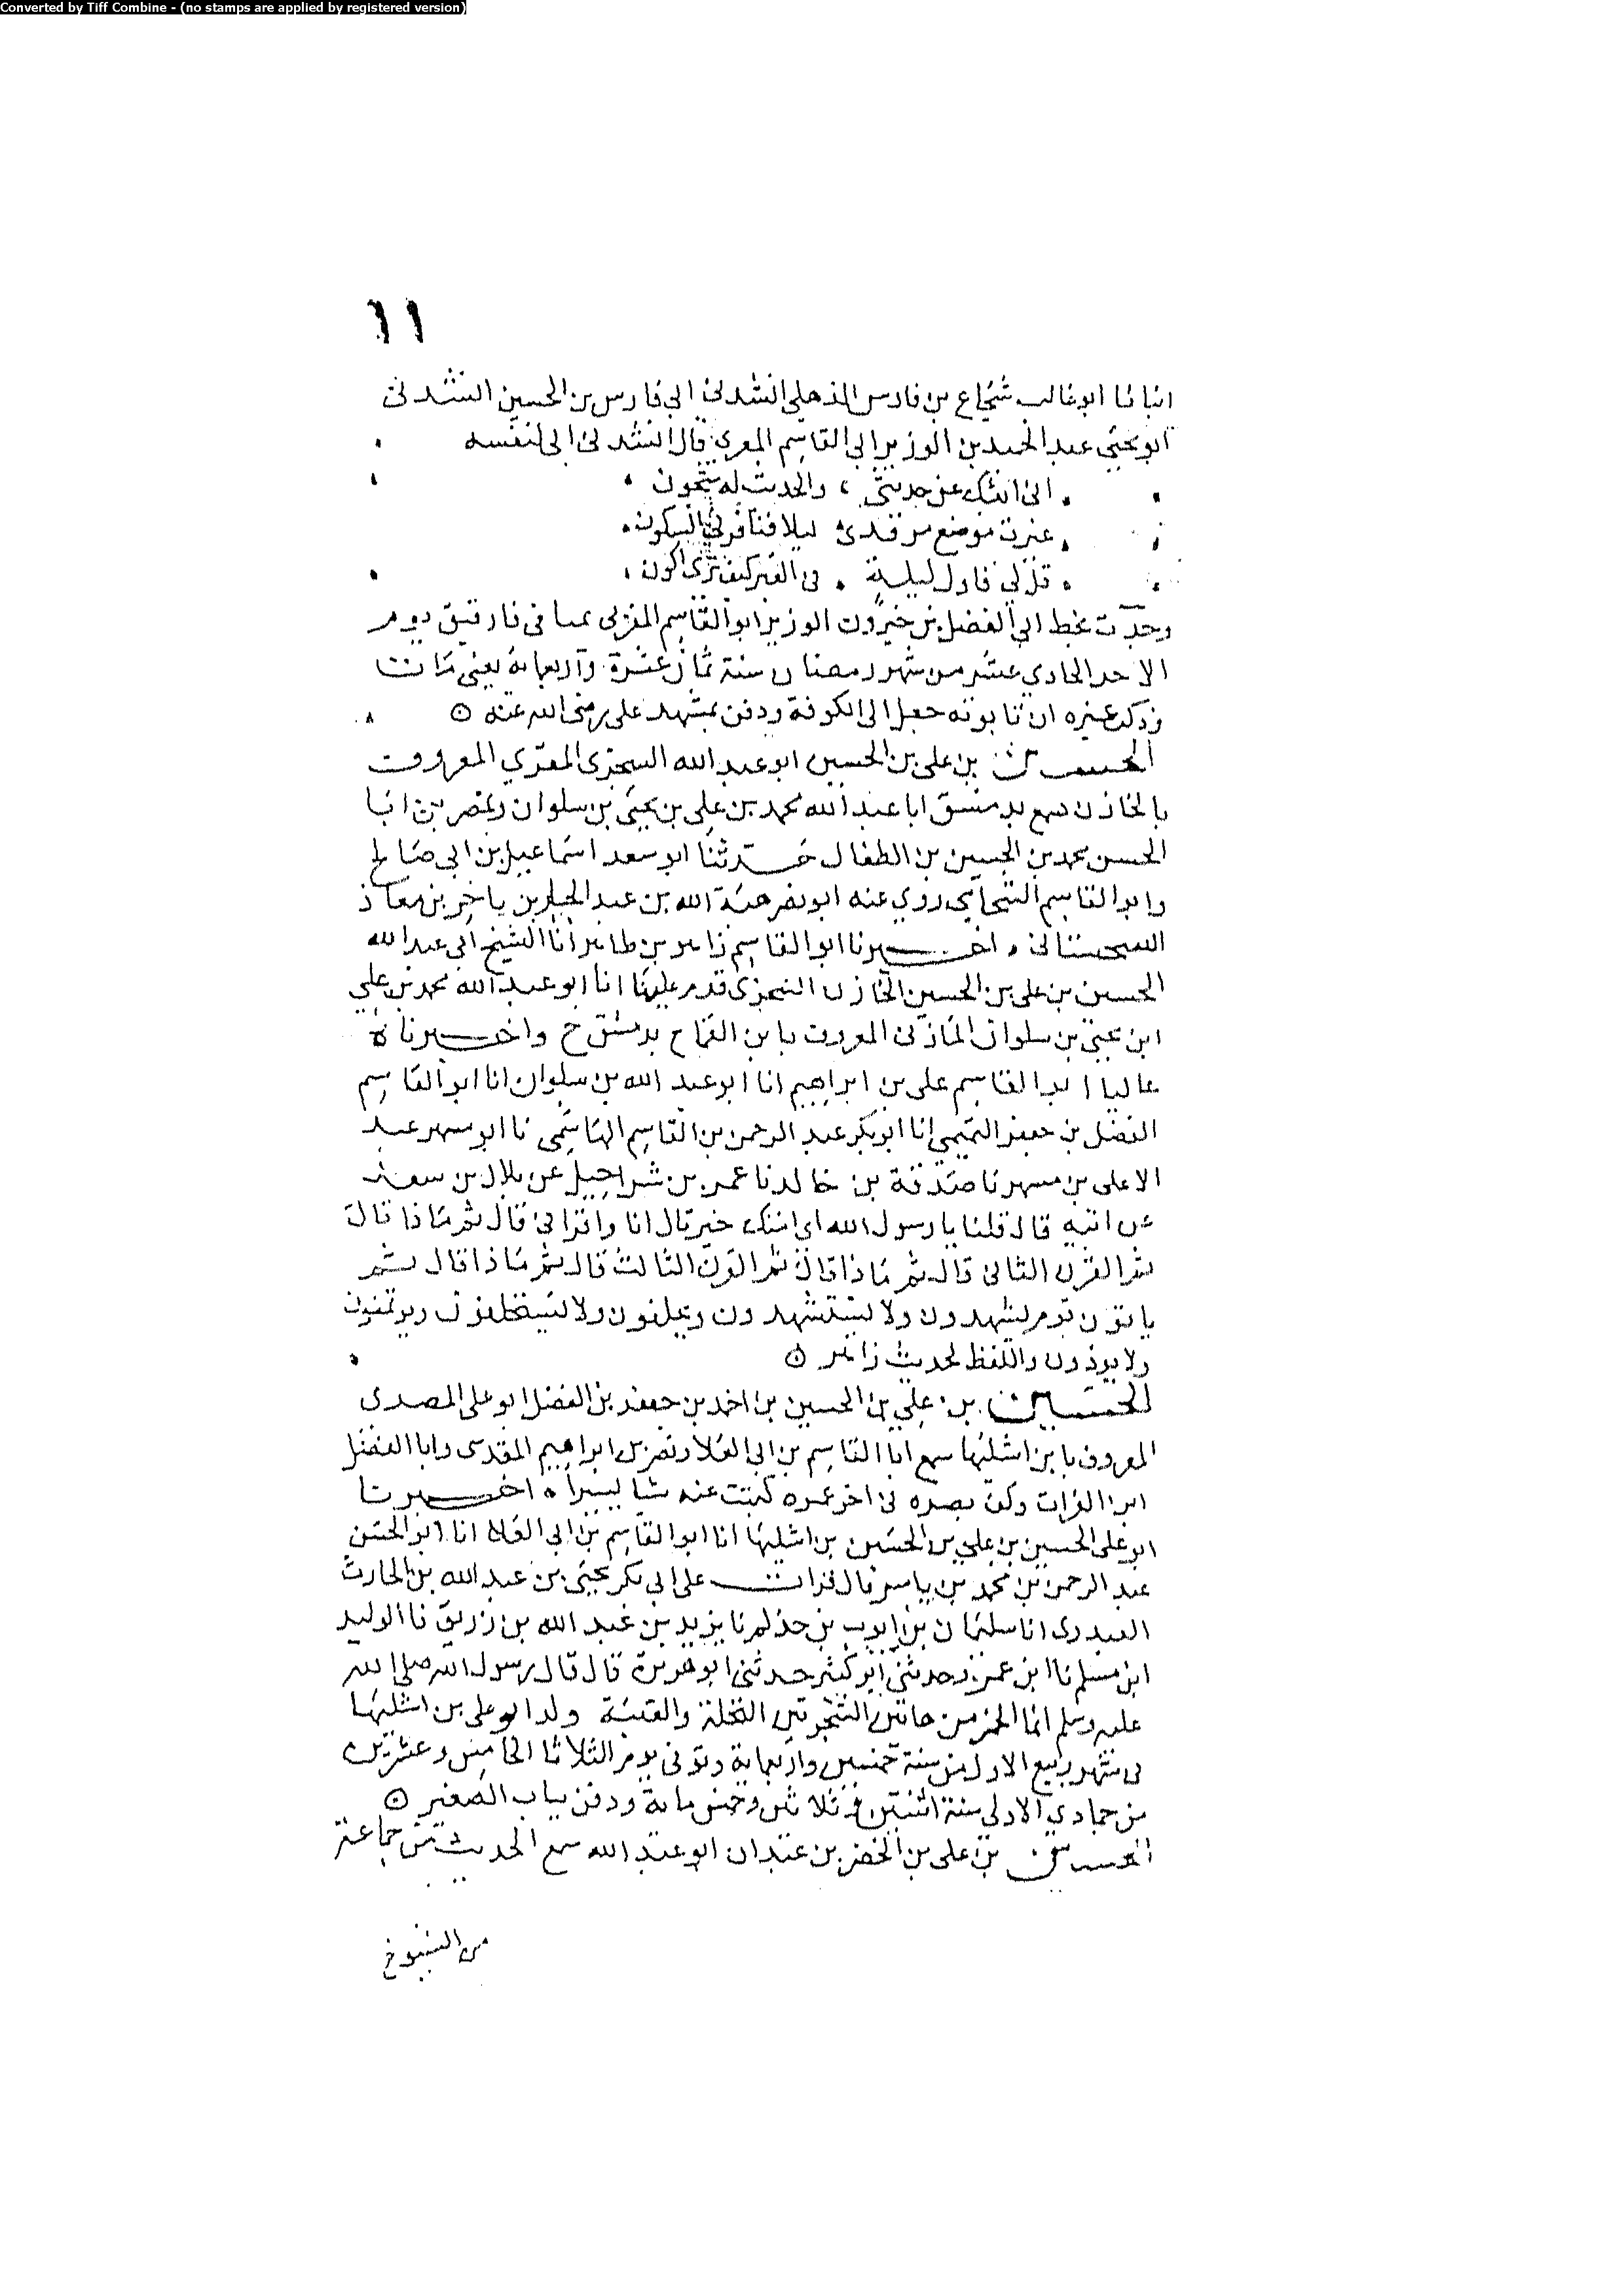 Converted by Tiff Combine - (no stamps are applied by registered version)
١١
انبانا ابو غالب شجاع بن فارس الذهلي انشدني ابي فارس بن الحسين انشدني
ابو يحيى عبد الحميد بن الوزير ابي القاسم المغربي قال انشدني ابي لنفسه
اني ابثك عن حديثي والحديث له شجون
غيرت موضع مرقدي ليلا فنافرني السكون
قل لي فاول ليلة في القبر كيف ترى اكون
وجدت بخط ابي الفضل بن خيرون الوزير ابو القاسم المغربي بميافارقين يوم
الاحد الحادي عشر من شهر رمضان سنة ثمان عشرة واربعماية يعني مات
وذكر غيره ان تابوته حمل الى الكوفة ودفن بمشهد علي رضي الله عنه
الحسين بن علي بن الحسين ابو عبد الله السجزي المقري المعروف
بالخازن سمع بدمشق ابا عبد الله محمد بن علي بن يحيى بن سلوان وبمصر ابا
الحسن محمد بن الحسين بن الطفال حدثنا ابو سعد اسماعيل بن ابي صالح
وابو القاسم الشحامي روي عنه ابو نصر هبة الله بن عبد الجبار بن فاخر بن معاذ
السجستاني اخبرنا ابو القاسم زاهر بن طاهر انا الشيخ ابي عبد الله
الحسين بن علي بن الحسين الخازن السجزي قدم علينا انا ابو عبد الله محمد بن علي
ابن يحيى بن سلوان المازني المعروف بابن القماح بدمشق ح واخبرناه
عاليا ابو القاسم علي بن ابراهيم انا ابو عبد الله بن سلوان انا ابو القاسم
الفضل بن جعفر التميمي انا ابو بكر عبد الرحمن بن القاسم الهاشمي نا ابو مسهر عبد
الاعلى بن مسهر نا صدقة بن خالد نا عمر بن شراحيل عن بلال بن سعد
عن ابيه قال قلنا يا رسول الله اي امتك خير قال انا واقراني قال ثم ماذا قال
ثم القرن الثاني قال ثم ماذا قال ثم القرن الثالث قال ثم ماذا قال ثم
ياتون قوم يشهدون ولا يستشهدون ويحلفون ولا يستحلفون ويوتمنون
ولا يودون واللفظ لحديث زاهر
الحسين بن علي بن الحسين بن احمد بن جعفر بن الفضل ابو علي المصدى
المعروف بابن اشليها سمع ابا القاسم بن ابي العلا ونصر بن ابراهيم المقدسي وابا الفضل
ابن الفرات وكف بصره في اخر عمره كتبت عنه شيا يسيرا اخبرنا
ابو علي الحسين بن علي بن الحسين بن اشليها انا ابو القاسم بن ابي العلا انا ابو الحسن
عبد الرحمن بن محمد بن ياسر قال قرات على ابي بكر يحيى بن عبد الله بن الحارث
العبدري انا سليمان بن ايوب بن حذلم نا يزيد بن عبد الله بن زريق نا الوليد
ابن مسلم نا ابن عمرو حدثني ابو كثير حدثني ابو هريرة قال قال رسول الله صلى الله
عليه وسلم انما الخمر من هاتين الشجرتين النخلة والعنبة ولد ابو علي بن اشليها
في شهر ربيع الاول من سنة خمسين واربعماية وتوفي يوم الثلاثا الخامس وعشرين
من جمادي الاولى سنة اثنتين وثلاثين وخمس ماية ودفن بباب الصغير
الحسين بن علي بن الخضر بن عبدان ابو عبد الله سمع الحديث من جماعة
من الشيوخ